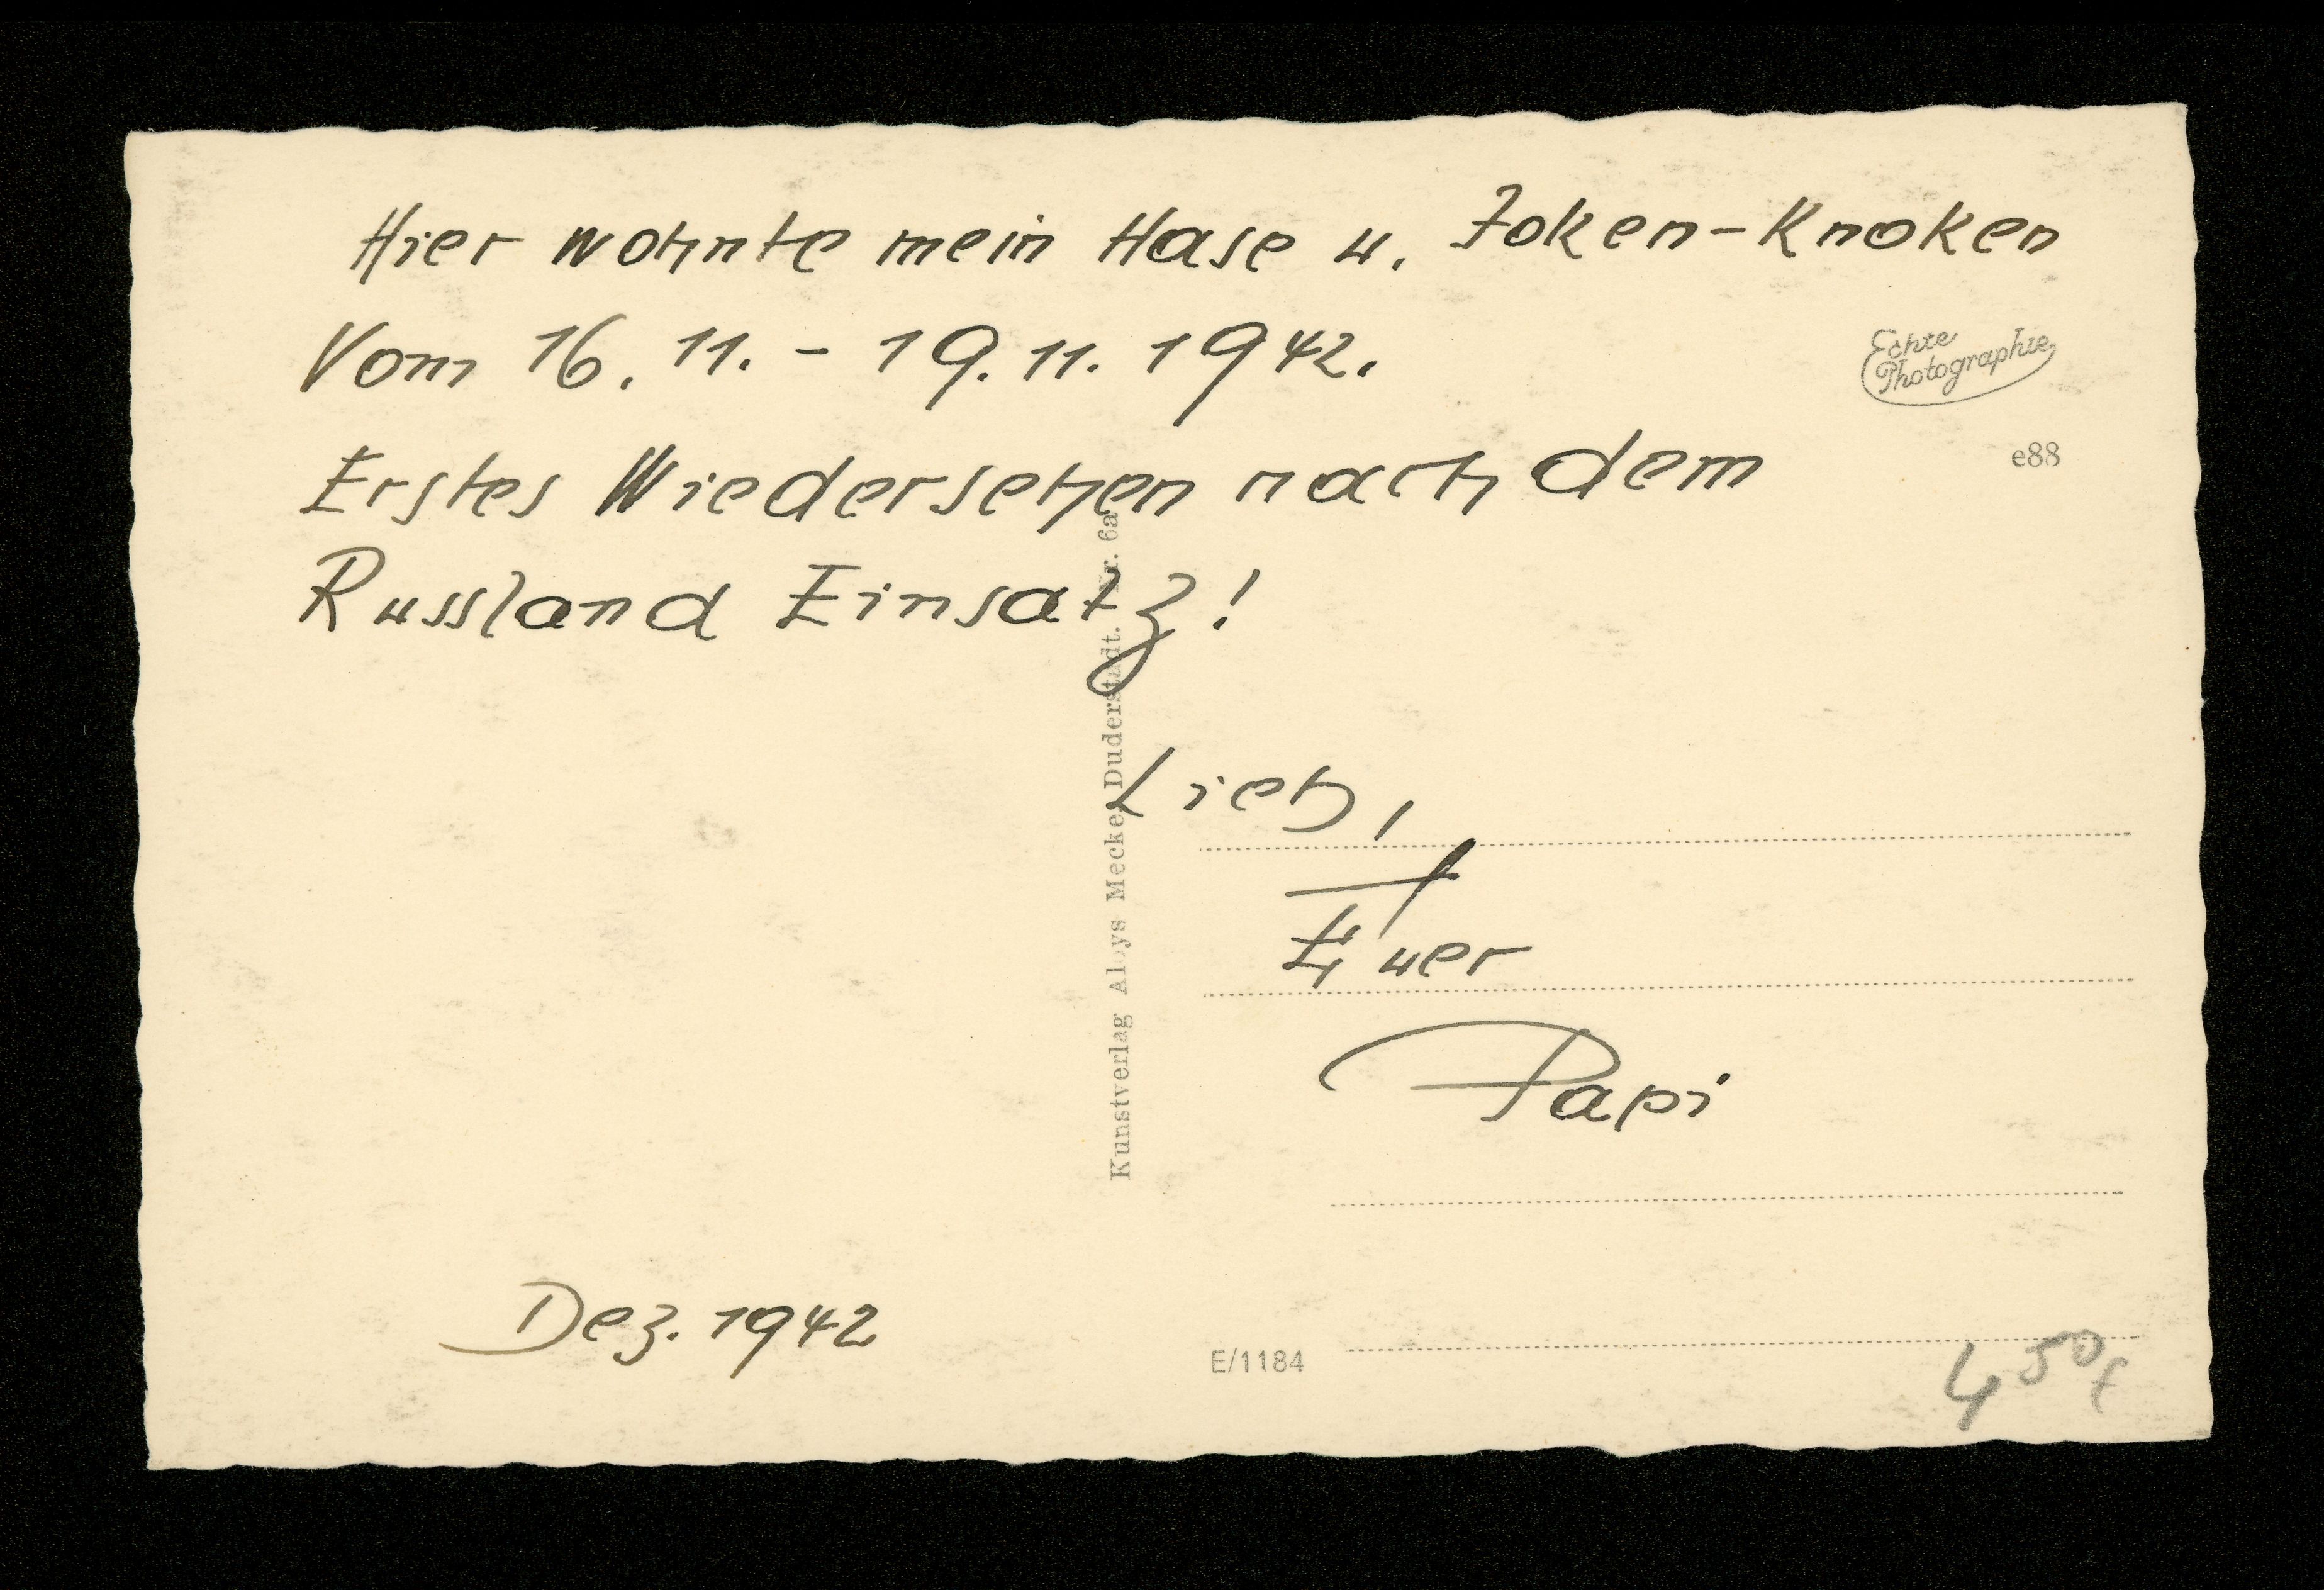 Hier wohnte mein Hase u. Joken-Knoken
Vom 16. 11. - 19. 11. 1942.
Erstes Wiedersehen nach dem
Russland Einsatz!
Echte
Photographie
e88
Kunstverlag Aloys Mecke, Duderstadt. Nr. 6a
Euer
Papi
Dez. 1942
E/1184
4 50